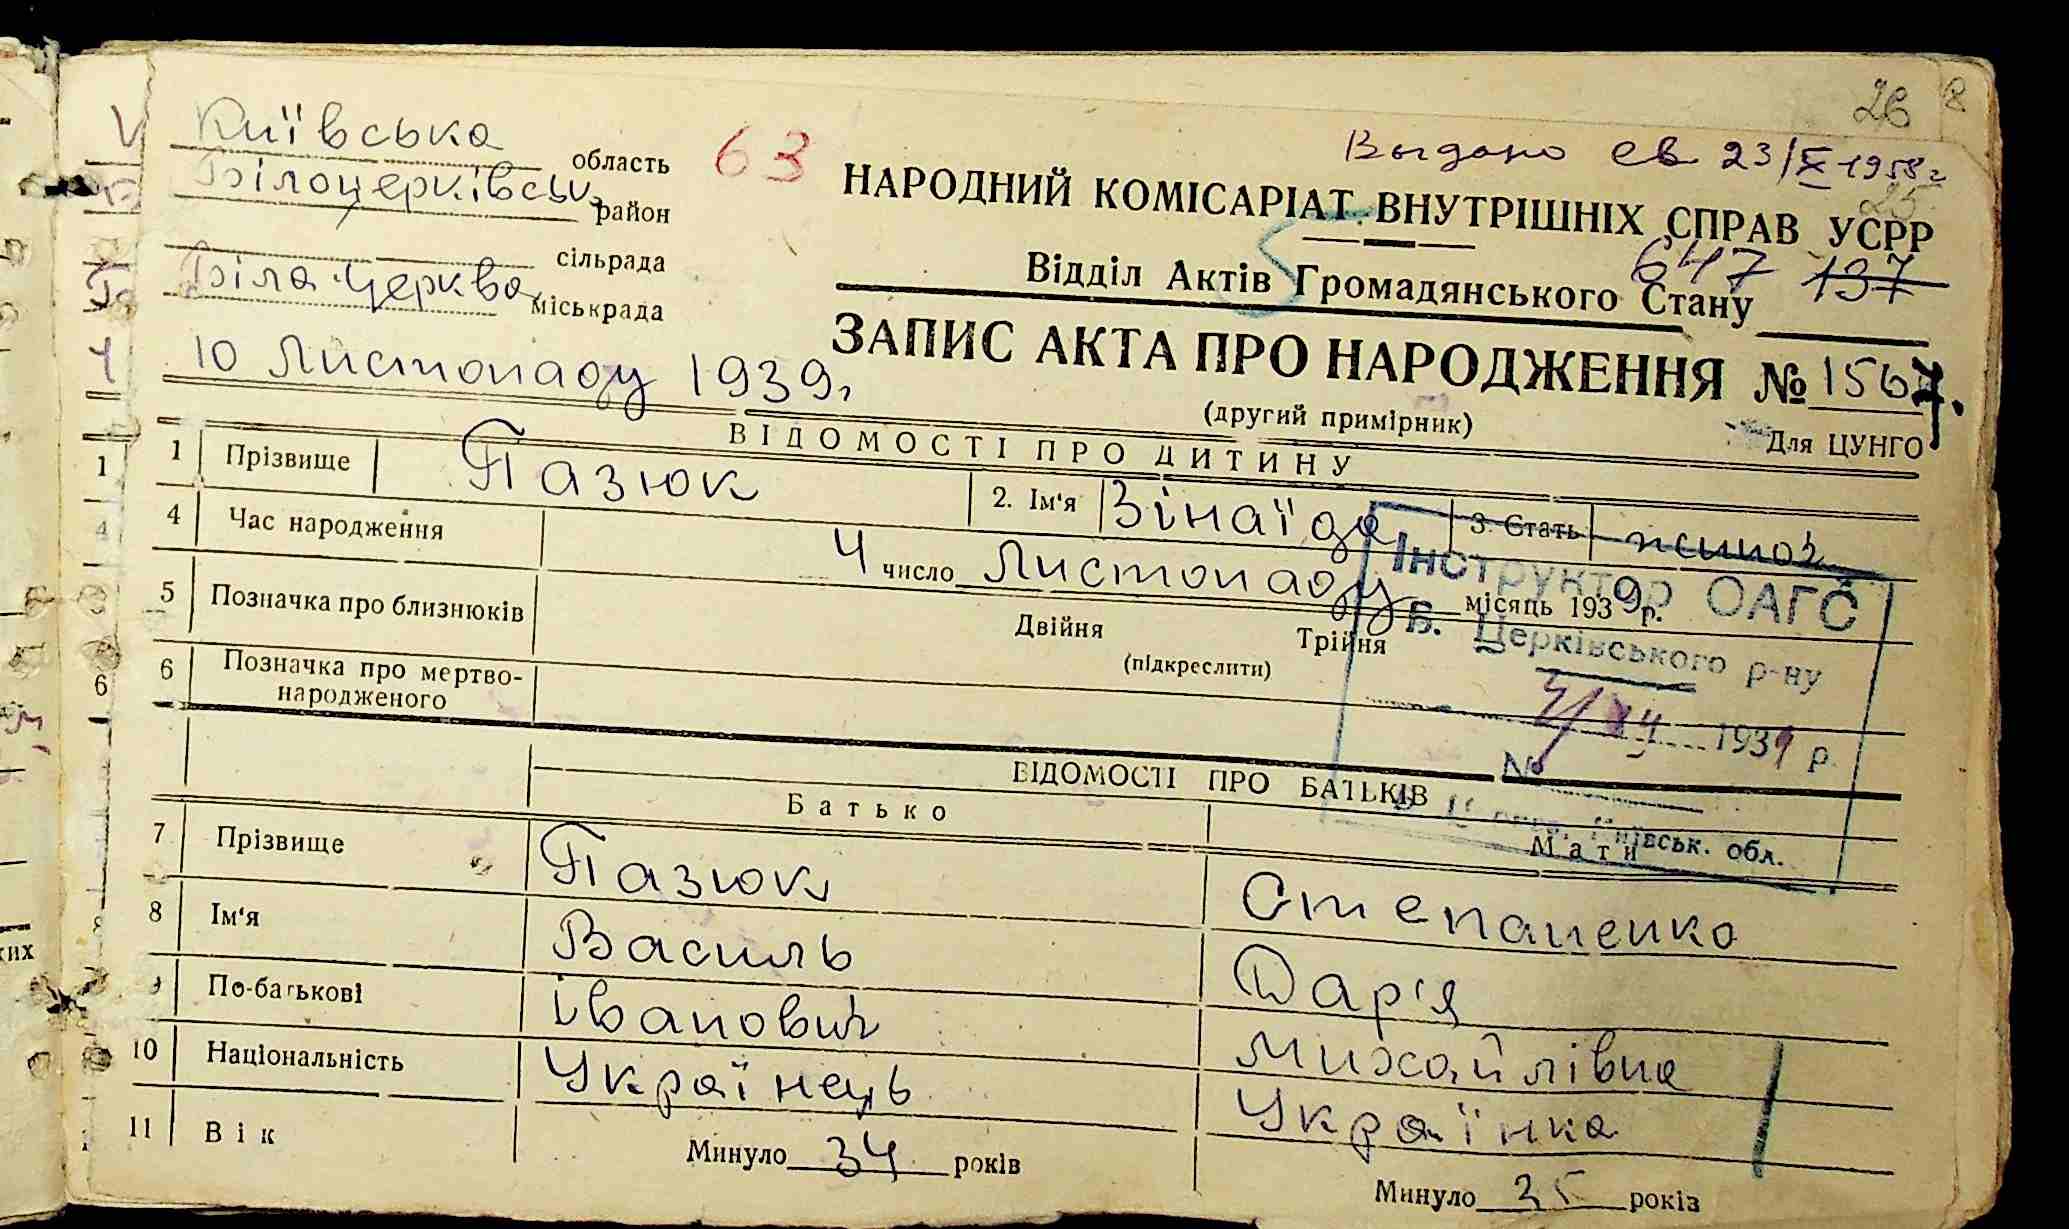 26
8
Київська область
63
Выдано св 23/X 1958 г
25
Білоцерківськ. район
НАРОДНИЙ КОМІСАРІАТ ВНУТРІШНІХ СПРАВ УСРР
сільрада
Відділ Актів Громадянського Стану
647 137
Біла-Церква міськрада
ЗАПИС АКТА ПРО НАРОДЖЕННЯ № 1567.
10 Листопаду 1939 г.
(другий примірник)
Для ЦУНГО
ВІДОМОСТІ ПРО ДИТИНУ
1 Прізвище Пазюк 2. Ім'я Зінаїда 3. Стать жіноч
4 Час народження 4 число Листопаду місяць 1939 р.
5 Позначка про близнюків Двійня Трійня
(підкреслити)
6 Позначка про мертво-
народженого
Інструктор ОАГС
Б. Церківського р-ну
1939 р.
№
Київськ. обл.
ВІДОМОСТІ ПРО БАТЬКІВ
Батько Мати
7 Прізвище Пазюк Степаненко
8 Ім'я Василь Дар'я
9 По-батькові Іванович Михайлівна
10 Національність Українець Українка
11 Вік Минуло 34 років Минуло 35 років
1
4
6
ких